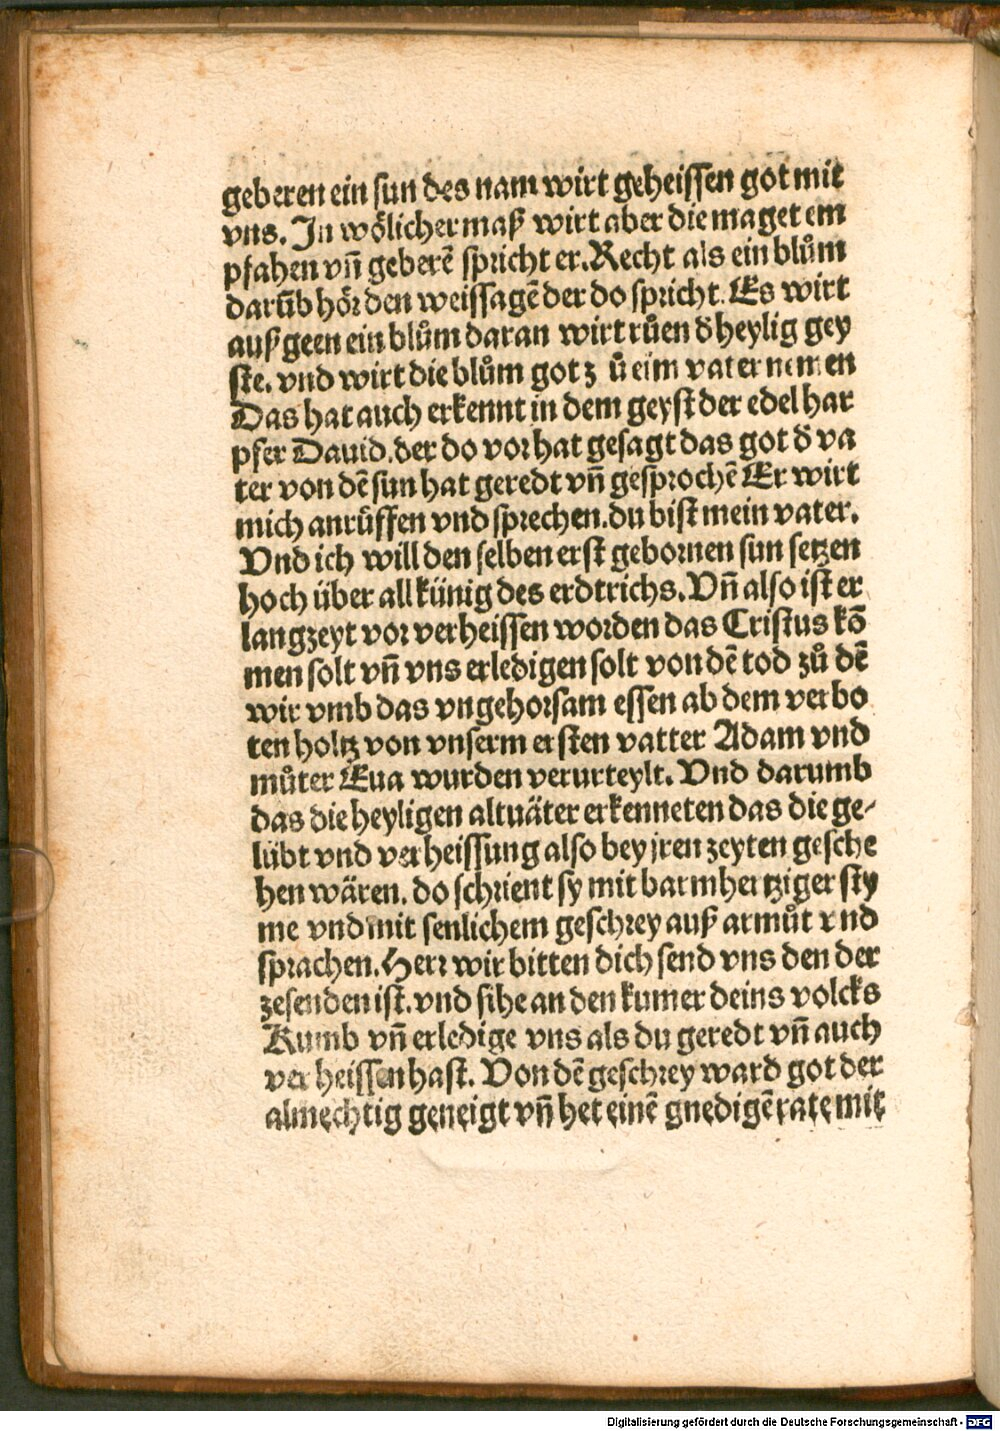 geberen ein sun des nam wirt geheissen got mit
vns. In wölicher maß wirt aber die maget em
pfahen vñ geberẽ spricht er. Recht als ein blům
darũb hör den weissagẽ der do spricht. Es wirt
auß geen ein blům daran wirt růen d̕ heylig gey
ste. vnd wirt die blům got zů eim vater nemen
Das hat auch erkennt in dem geyst der edel har
pfer Dauid. der do vor hat gesagt das got d̕ va
ter von dẽ sun hat geredt vñ gesprochẽ Er wirt
mich anrůffen vnd sprechen. du bist mein vater.
Vnd ich will den selben erst gebornen sun setzen
hoch über all künig des erdtrichs. Vñ also ist er
langzeyt vor verheissen worden das Cristus kõ
men solt vñ vns erledigen solt von dẽ tod zů dẽ
wir vmb das vngehorsam essen ab dem verbo
ten holtz von vnserm ersten vatter Adam vnd
můter Eua wurden verurteylt. Vnd darumb
das die heyligen altuäter erkenneten das die ge-
lübt vnd verheissung also bey jren zeyten gesche
hen wären. do schrient sy mit barmhertziger sty
me vnd mit senlichem geschrey auß armůt vnd
sprachen. Herr wir bitten dich send vns den der
zesenden ist. vnd sihe an den kumer deins volcks
Kumb vñ erledige vns als du geredt vñ auch
verheissen hast. Von dẽ geschrey ward got der
almechtig geneigt vñ het einẽ gnedigẽ rate mit
Digitalisierung gefördert durch die Deutsche Forschungsgemeinschaft - DFG